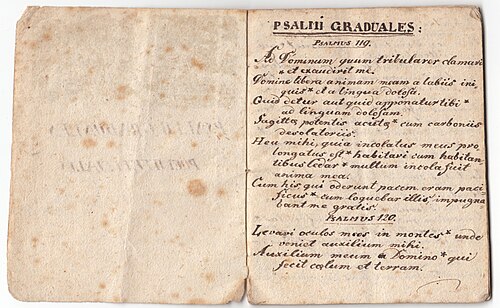 PSALMI GRADUALES:
PSALMUS 119.
Ad Dominum quum tribularer clamavi
* et exaudivit me.
Domine libera animam meam a labiis ini
quis * et a lingua dolosa.
Quid detur aut quid apponatur tibi *
ad linguam dolosam.
Sagittæ potentis acutæ * cum carboniis
desolatoriis.
Heu mihi, quia incolatus meus pro
longatus est * habitavi cum habitan
tibus Cedar * multum incola fuit
anima mea.
Cum his qui oderunt pacem eram paci
ficus * cum loquebar illis, impugna
bant me gratis.
PSALMUS 120.
Levavi oculos meos in montes * unde
veniet auxilium mihi.
Auxilium meum a Domino * qui
fecit cælum et terram.